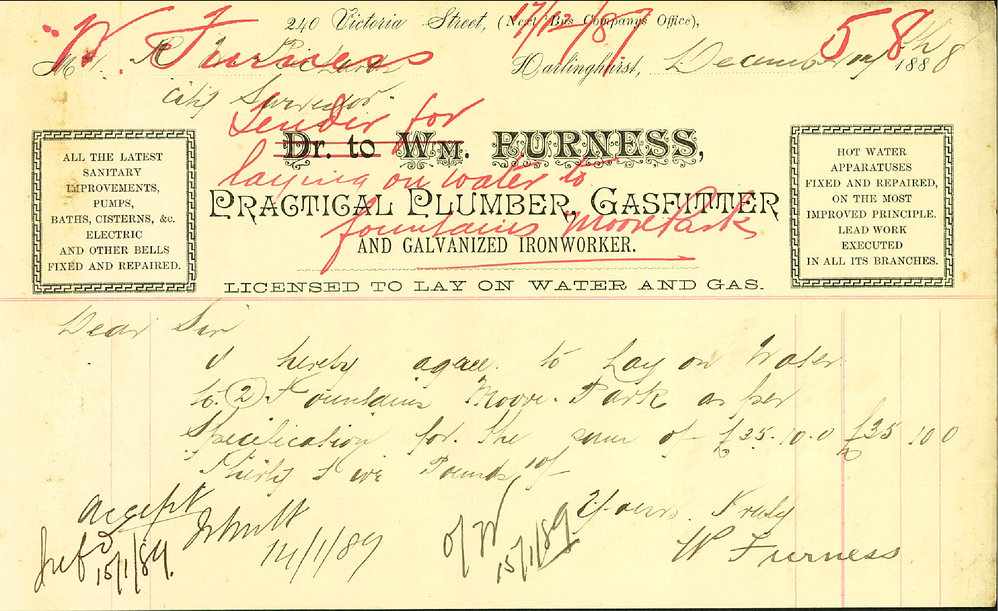 240 Victoria Street, (Next Bus Companys Office),
17/12/87
58
W. Furness
Mr. R
Darlinghurst, December 17th 1888
City Surveyor.
Tender for
Dr. to Wm. FURNESS,
laying on water to
PRACTICAL PLUMBER, GASFITTER
fountains Moore Park
AND GALVANIZED IRONWORKER.
LICENSED TO LAY ON WATER AND GAS.
ALL THE LATEST
SANITARY
IMPROVEMENTS,
PUMPS,
BATHS, CISTERNS, &c.
ELECTRIC
AND OTHER BELLS
FIXED AND REPAIRED.
HOT WATER
APPARATUSES
FIXED AND REPAIRED,
ON THE MOST
IMPROVED PRINCIPLE.
LEAD WORK
EXECUTED
IN ALL ITS BRANCHES.
Dear Sir
I hereby agree to Lay on Water
to (2) Fountains Moore Park as per
Specification for the sum of £35.10.0 £35 10 0
Thirty Five Pounds 10/
Yours Truly
W Furness
accept
14/1/89
15/1/89.
15/1/89